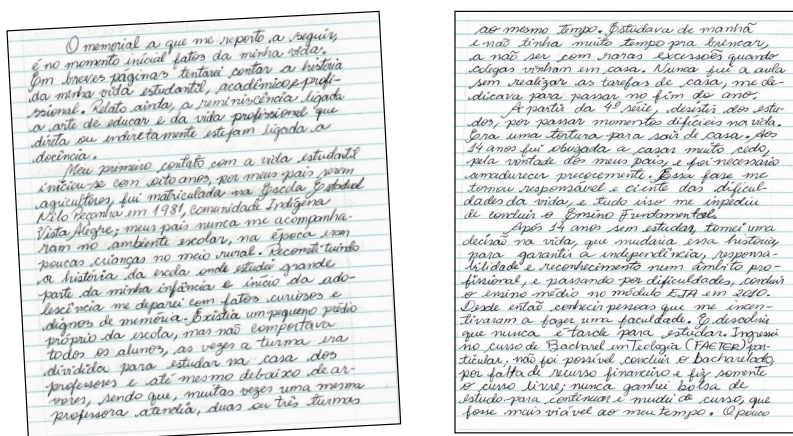 O memorial a que me reporto a seguir,
é no momento inicial fatos da minha vida.
Em breves páginas tentarei contar a história
da minha vida estudantil, acadêmica, e profi-
ssional. Relato ainda, a reminiscência ligada
a arte de educar e da vida profissional que
direta ou indiretamente estejam ligada a
docência.
Meu primeiro contato com a vida estudantil
iniciou-se com oito anos, por meus pais serem
agricultores, fui matriculada na Escola Estadual
Nilo Peçanha em 1981, Comunidade Indígena
Vista Alegre; meus pais nunca me acompanha-
ram no ambiente escolar, na época eram
poucas crianças no meio rural. Reconstituindo
a história da escola onde estudei grande
parte da minha infância e início da ado-
lescência me deparei com fatos curiosos e
dignos de memória. Existia um pequeno prédio
próprio da escola, mas não comportava
todos os alunos, as vezes a turma era
dividida para estudar na casa dos
professores e até mesmo debaixo de ar-
vores, sendo que, muitas vezes uma mesma
professora atendia, duas ou três turmas
ao mesmo tempo. Estudava de manhã
e não tinha muito tempo pra brincar,
a não ser com raras excessões quando
colegas vinham em casa. Nunca fui a aula
sem realizar as tarefas de casa, me de-
dicava para passar no fim do ano.
A partir da 4ª série, desistir dos estu-
dos, por passar momentos difíceis na vida.
Era uma tortura para sair de casa. Aos
14 anos fui obrigada a casar muito cedo,
pela vontade dos meus pais, e foi necessário
amadurecer precocemente. Essa fase me
tornou responsável e ciente das dificul-
dades da vida, e tudo isso me impediu
de concluir o Ensino Fundamental.
Após 14 anos sem estudar, tomei uma
decisão na vida, que mudaria essa história,
para garantir a independência, responsa-
bilidade e reconhecimento num âmbito pro-
fissional, e passando por dificuldades, conclui
o ensino médio no módulo EJA em 2010.
Desde então conheci pessoas que me incen-
tivaram a fazer uma faculdade. E descobri
que nunca é tarde para estudar. Ingressei
no curso de Bacharel em Teologia (FAETER) par-
ticular, não foi possível concluir o bacharelado,
por falta de recurso financeiro e fiz somente
o curso livre; nunca ganhei bolsa de
estudo para continuar e mudei de curso, que
fosse mais viável ao meu tempo. O pouco